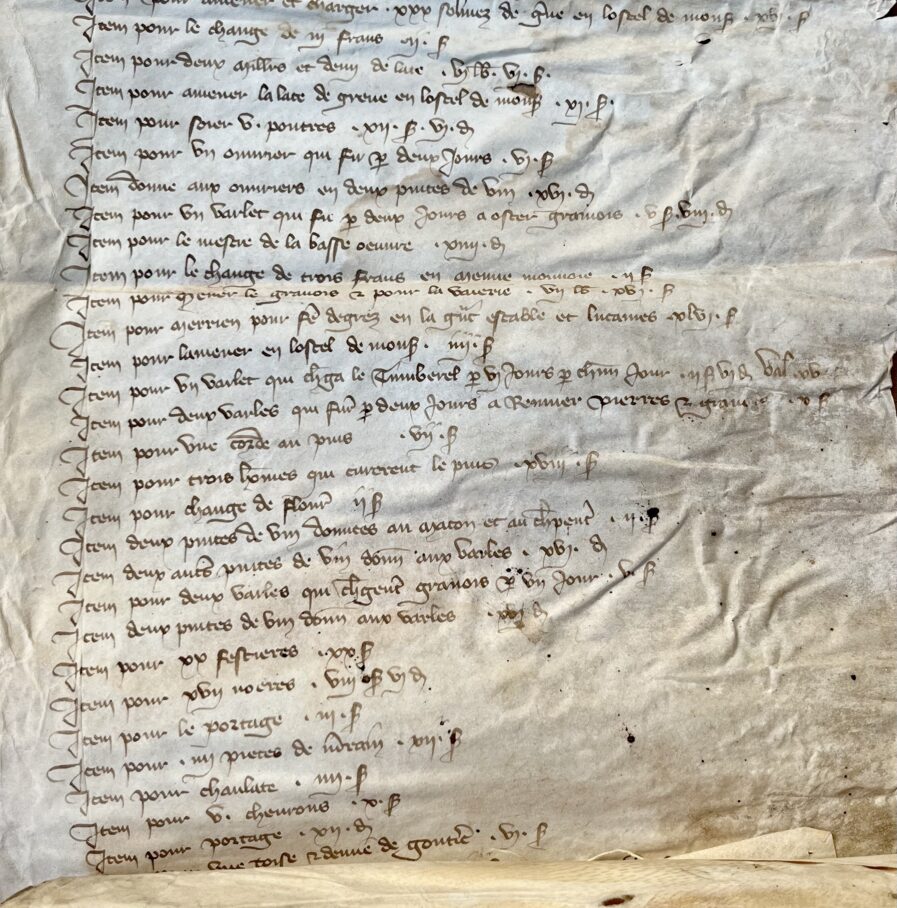 Item pour amener et charger · xxx solivez de gve en lostel de mons · xvi · s
Item pour le change de iii frans · iii · s
Item pour deux milliers et demi de late · vi lb · vi · s ·
Item pour amener la late de greve en lostel de mons · xi · s ·
Item pour soier v · poutres · xii · s · vi · d
Item pour un ouvrier qui fu p deux jours · vi · s
Item donne aux ouvriers en deux pintes de vin · xvi · d
Item pour un varlet qui fu p deux jours a oster gravois · v s · viii · d
Item pour le mestre de la basse oeuvre · xiiii · d
Item pour le change de trois frans en menue monnoie · ii s
Item pour mener le gravois et pour la voierie · vii lb · xvi · s
Item pour merrien pour fe degrez en la gnt estable et lucarnes · xlvi · s
Item pour lamener en lostel de mons · iiii · s
Item pour un varlet qui chga le tumberel p vi jours p chun jour · ii s vi d val xv
Item pour deux varles qui fur p deux jours a remuer pierres et gravois · x s
Item pour une corde au puis · vii · s
Item pour trois homes qui curerent le puis · xviii · s
Item pour change de flour ii s
Item deux pintes de vin donnees au macon et au chpent · ii · s
Item deux autes pintes de vin donn aux varles · xvi · d
Item pour deux varles qui chgent gravois p un jour · v · s
Item deux pintes de vin donn aux varles · xvi d
Item pour xx festieres · xx · s
Item pour xvii noeres · viii s vi d
Item pour le portage · iii · s
Item pour · iiii pieces de mrain · xii · s
Item pour chanlate · iiii · s
Item pour v · chevrons · x · s
Item pour portage · xii · d
une toise et demie de goutie · vi · s